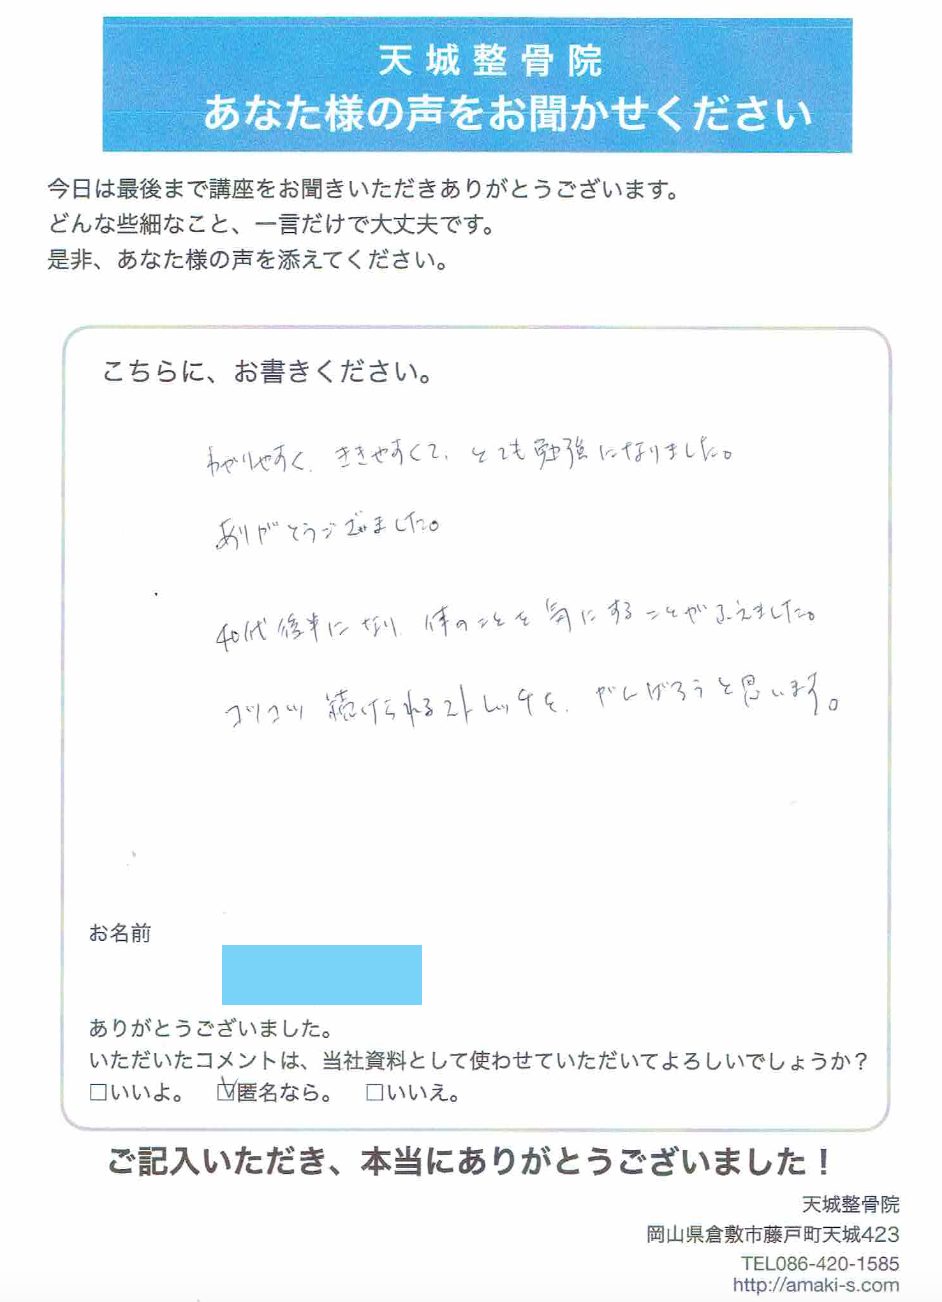 天城整骨院
あなた様の声をお聞かせください
今日は最後まで講座をお聞きいただきありがとうございます。
どんな些細なこと、一言だけで大丈夫です。
是非、あなた様の声を添えてください。
こちらに、お書きください。
わかりやすく、ききやすくて、とても勉強になりました。
ありがとうございました。
40代後半になり、体のことを気にすることがふえました。
コツコツ続けられるストレッチを、がんばろうと思います。
お名前
ありがとうございました。
いただいたコメントは、当社資料として使わせていただいてよろしいでしょうか?
□いいよ。 ☑匿名なら。 □いいえ。
ご記入いただき、本当にありがとうございました!
天城整骨院
岡山県倉敷市藤戸町天城423
TEL086-420-1585
http://amaki-s.com